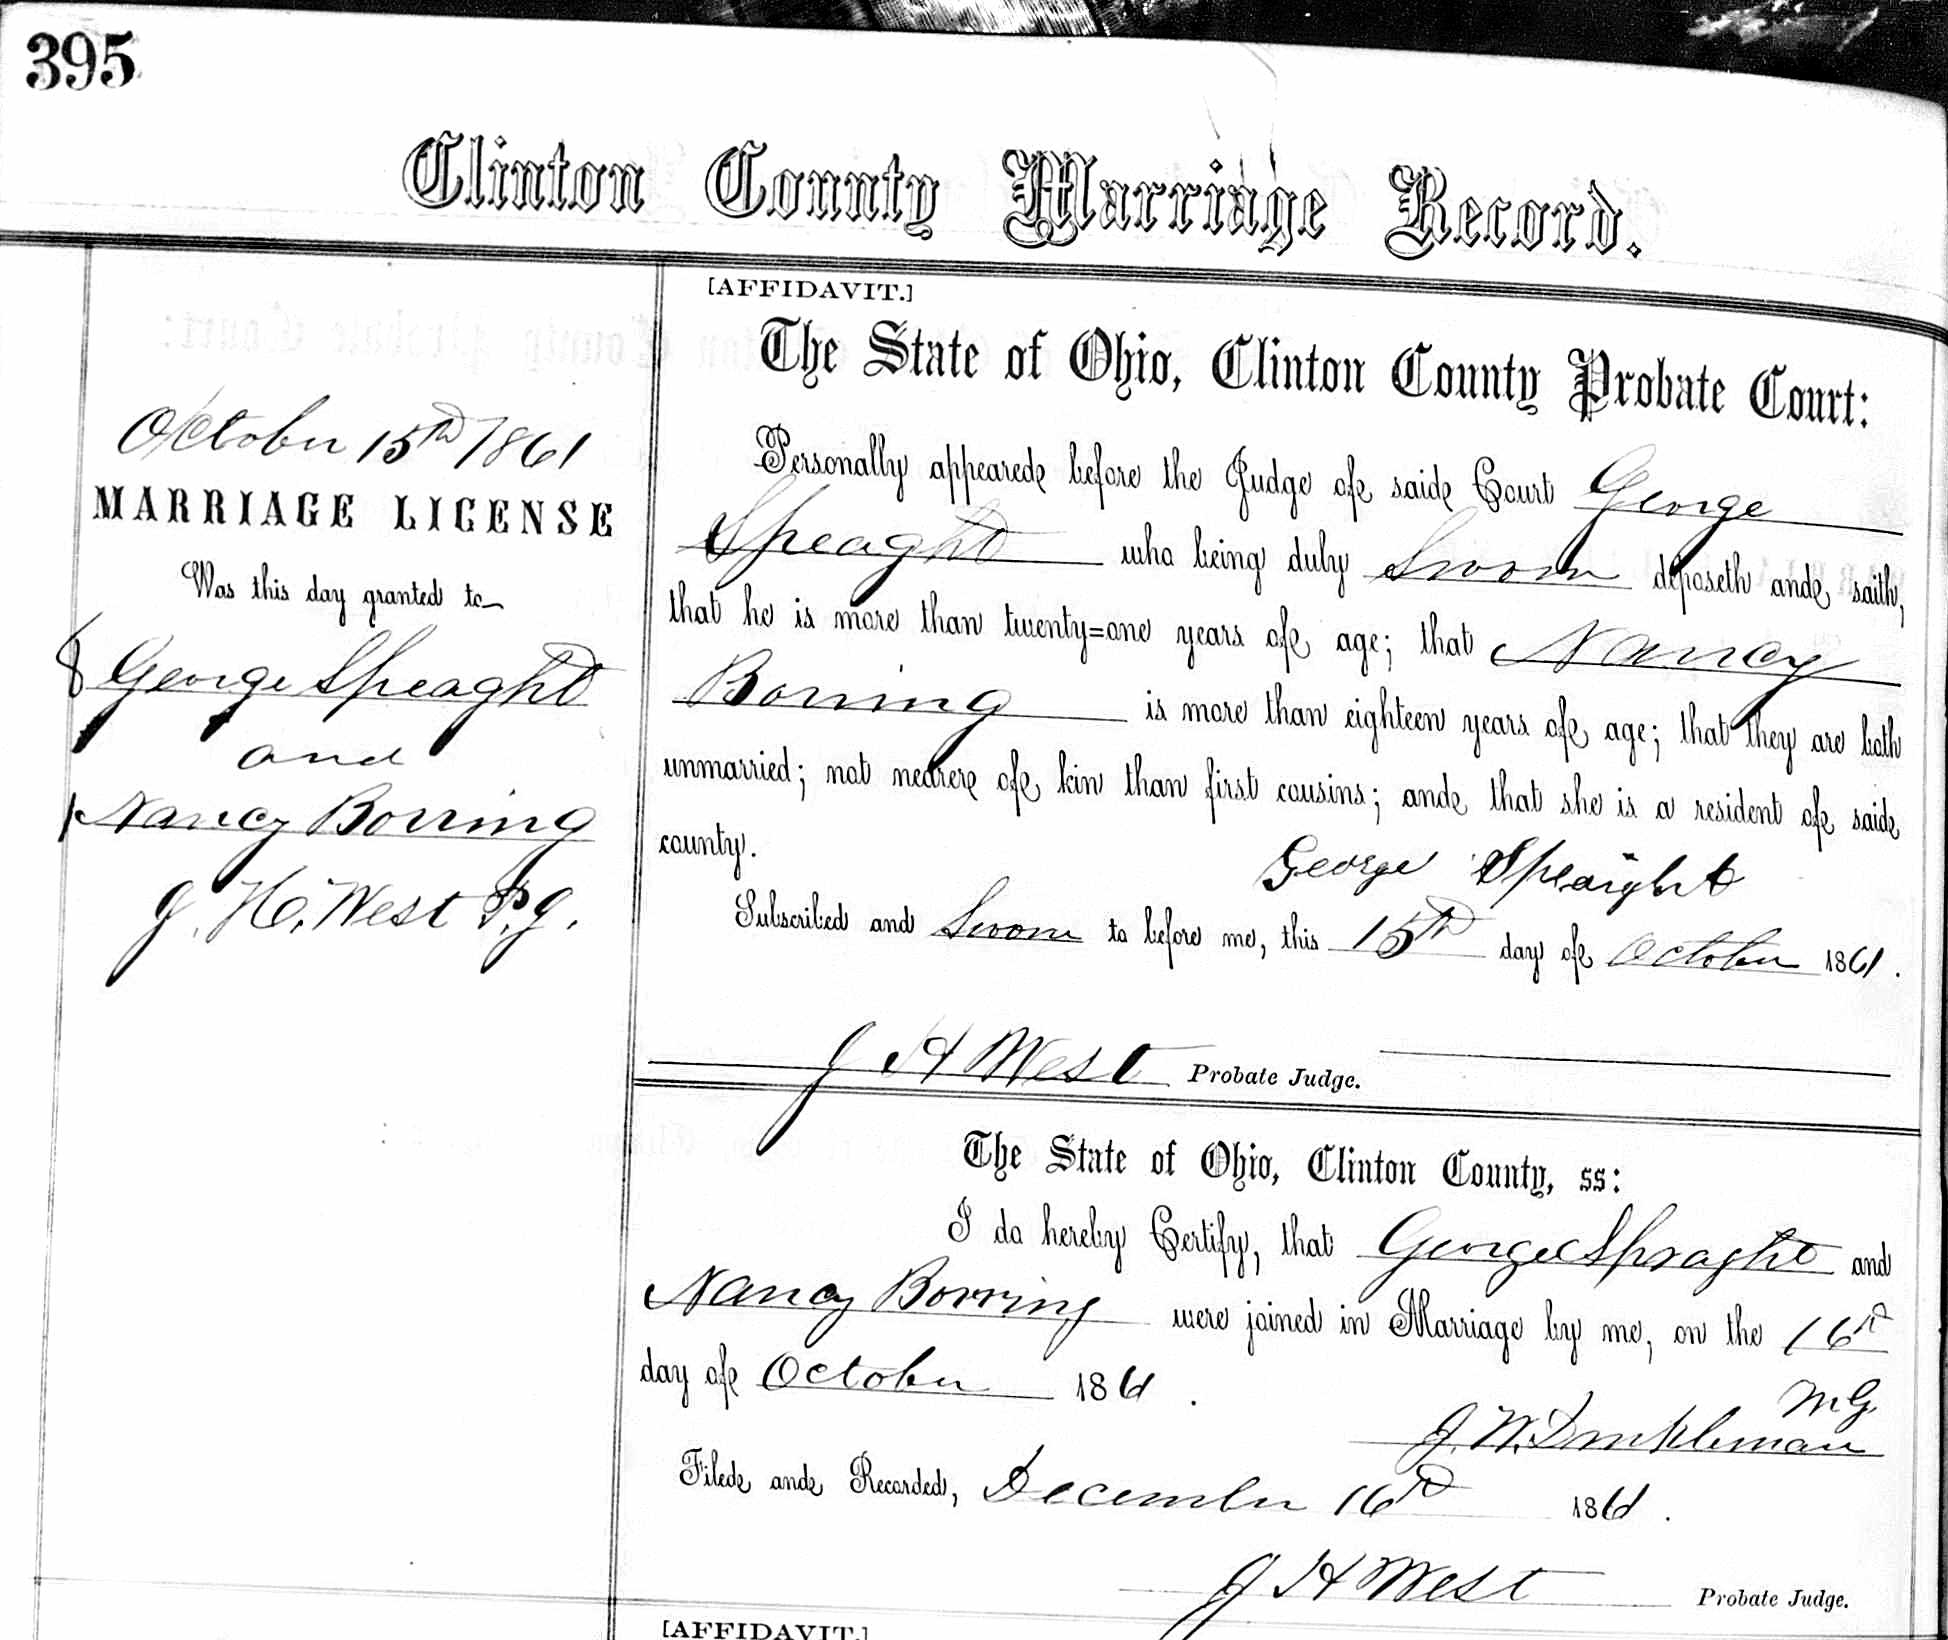 395
Clinton County Marriage Record.
October 15th 1861
MARRIAGE LICENSE
Was this day granted to
George Speaght
and
Nancy Borring
J. H. West P. J.
[AFFIDAVIT.]
The State of Ohio, Clinton County Probate Court:
Personally appeared before the Judge of said Court George
Speaght who being duly Sworn deposeth and saith,
that he is more than twenty=one years of age; that Nancy
Borring is more than eighteen years of age; that they are both
unmarried; not nearer of kin than first cousins; and that she is a resident of said
county.
George Speaight
Subscribed and Sworn to before me, this 15th day of October 1861.
J H West Probate Judge.
The State of Ohio, Clinton County, ss:
I do hereby Certify, that George Speaght and
Nancy Borring were joined in Marriage by me, on the 16th
day of October 1861.
M.G.
J. W.
Filed and Recorded, December 16th 1861.
J H West Probate Judge.
[AFFIDAVIT.]